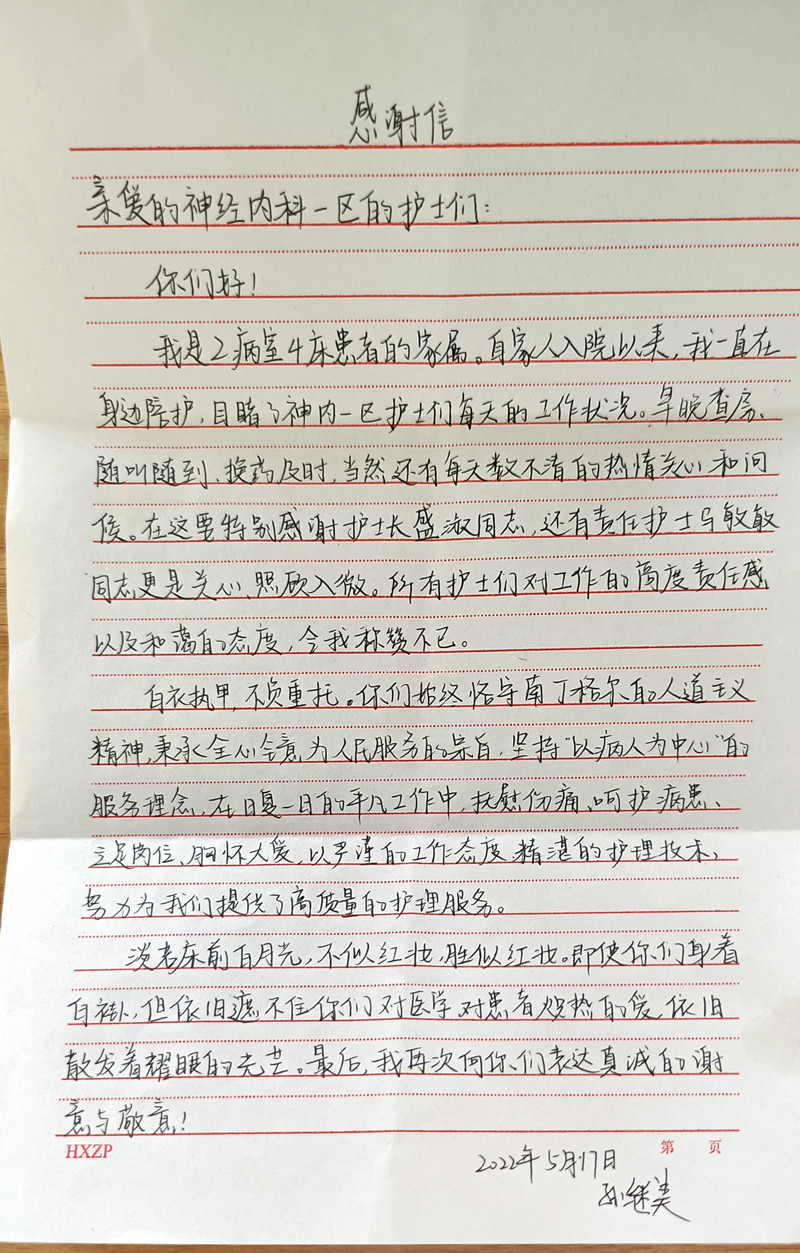 感谢信
亲爱的神经内科一区的护士们：
你们好！
我是2病室4床患者的家属。自家人入院以来，我一直在
身边陪护，目睹了神内一区护士们每天的工作状况。早晚查房、
随叫随到、换药及时，当然还有每天数不清的热情关心和问
候。在这里特别感谢护士长盛淑同志，还有责任护士马敏敏
同志更是关心、照顾入微。所有护士们对工作的高度责任感
以及和蔼的态度，令我称赞不已。
白衣执甲，不负重托。你们始终恪守南丁格尔的人道主义
精神，秉承全心全意为人民服务的宗旨，坚持“以病人为中心”的
服务理念，在日复一日的平凡工作中，抚慰伤痛、呵护病患、
立足岗位、胸怀大爱，以严谨的工作态度、精湛的护理技术，
努力为我们提供了高质量的护理服务。
淡考床前白月光，不似红妆，胜似红妆。即使你们身着
白褂，但依旧遮不住你们对医学对患者炽热的爱，依旧
散发着耀眼的光芒。最后，我再次向你们表达真诚的谢
意与敬意！
HXZP
第 页
2022年5月17日
孙继美